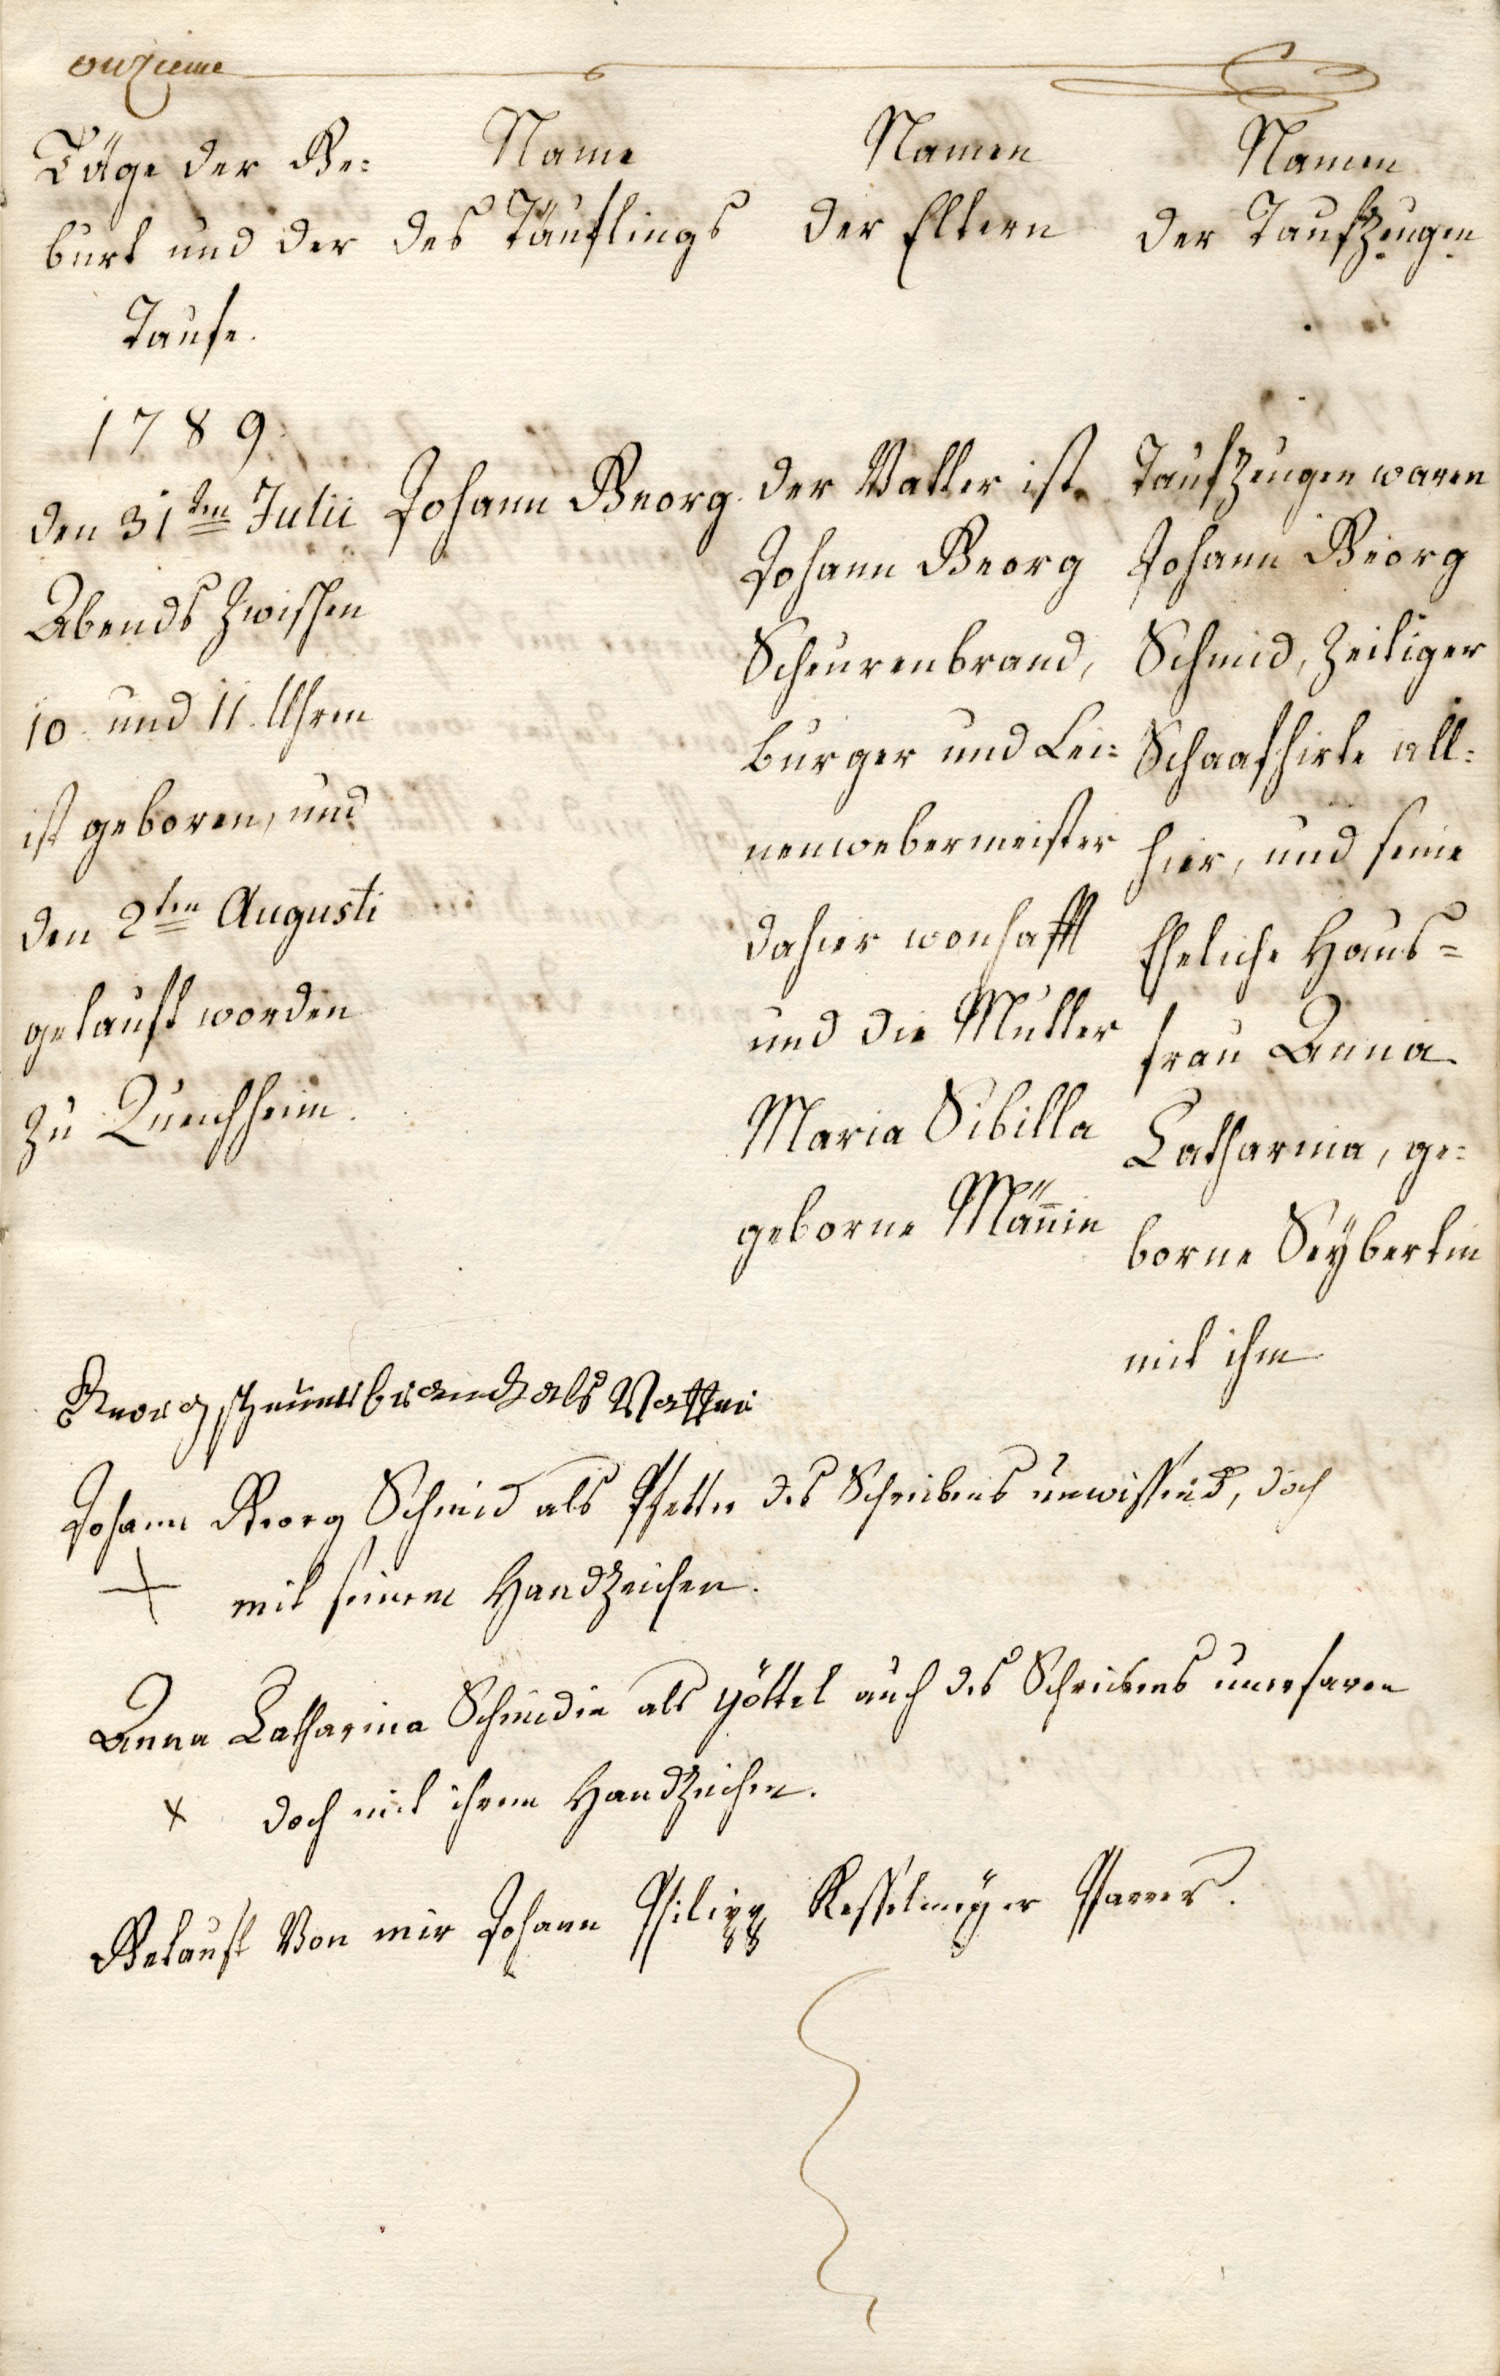 onzieme
Täge der Ge=
burt und der
Taufe.
Name
des Täuflings
Namen
der Eltern
Namen
der Taufzeugen
1789
den 31ten Julii
Abends zwischen
10 und 11 Uhren
ist geboren, und
den 2ten Augusti
getauft worden
zu Queichheim.
Johann Georg
der Vatter ist
Johann Georg
Scheurenbrand,
burger und Lei=
nenwebermeister
dahier wonhafft
und die Mutter
Maria Sibilla
geborne Männin
Taufzeugen waren
Johann Georg
Schmid, zeitiger
Schaafhirte all=
hier, und seine
Eheliche Haus=
frau Anna
Catharina, ge=
borne Seybertin
mit ihm
Georg scheuerbrandt als Vatter
Johann Georg Schmid als Pfetter des Schreibens unwissend, doch
+ mit seinem Handzeichen.
Anna Catharina Schmidin als göttel auch des Schreibens unerfaren
x doch mit ihrem Handzeichen.
Getauft Von mir Johann Philipp Kesselmeyer Pfarrer.